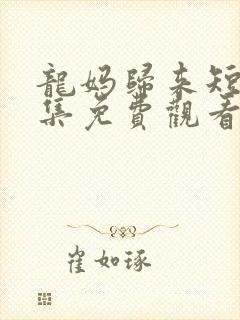 龍媽歸來短
集免費觀看
崔如琢